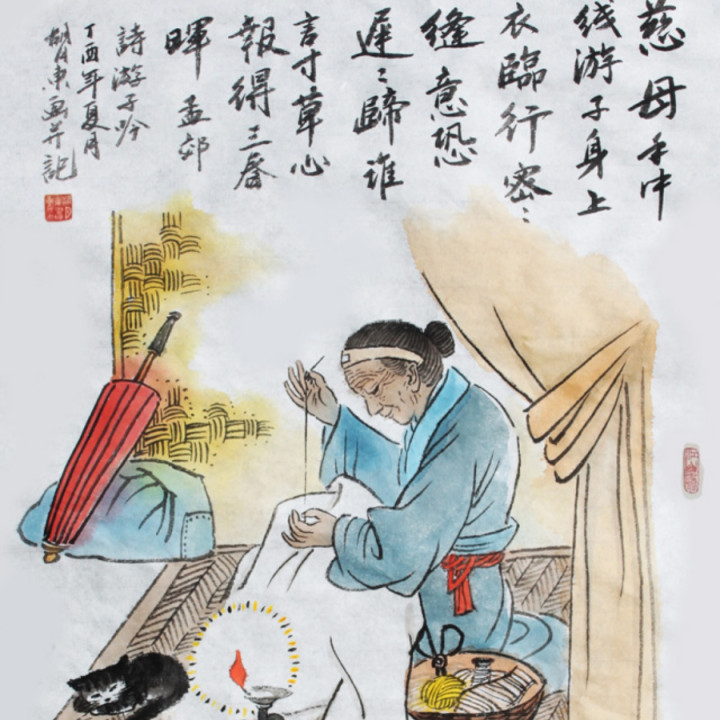 慈母手中
线游子身上
衣臨行密々
縫意恐
遲々歸谁
言寸草心
報得三春
暉 孟郊
詩游子吟
丁酉年夏月
東画并記